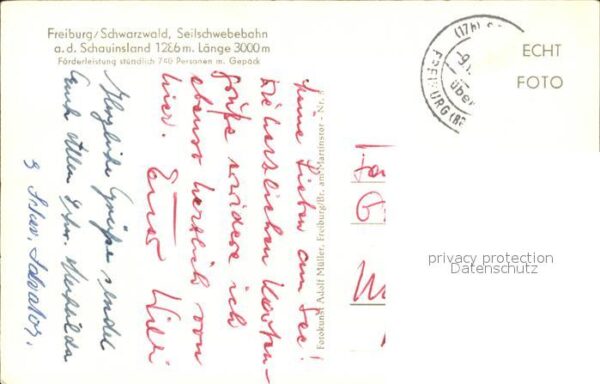 Freiburg/Schwarzwald, Seilschwebebahn
a. d. Schauinsland 1286 m. Länge 3000 m
Förderleistung stündlich 740 Personen m. Gepäck
ECHT
FOTO
FREIBURG
Meine Lieben am See!
Die herzlichen Karten-
grüße erwidere ich
ebenso herzlich von
hier. Euer Willi
Herzliche Grüße sendet
Euch allen
Fotokunst Adolf Müller, Freiburg/Br. am Martinstor - Nr.
privacy protection
Datenschutz